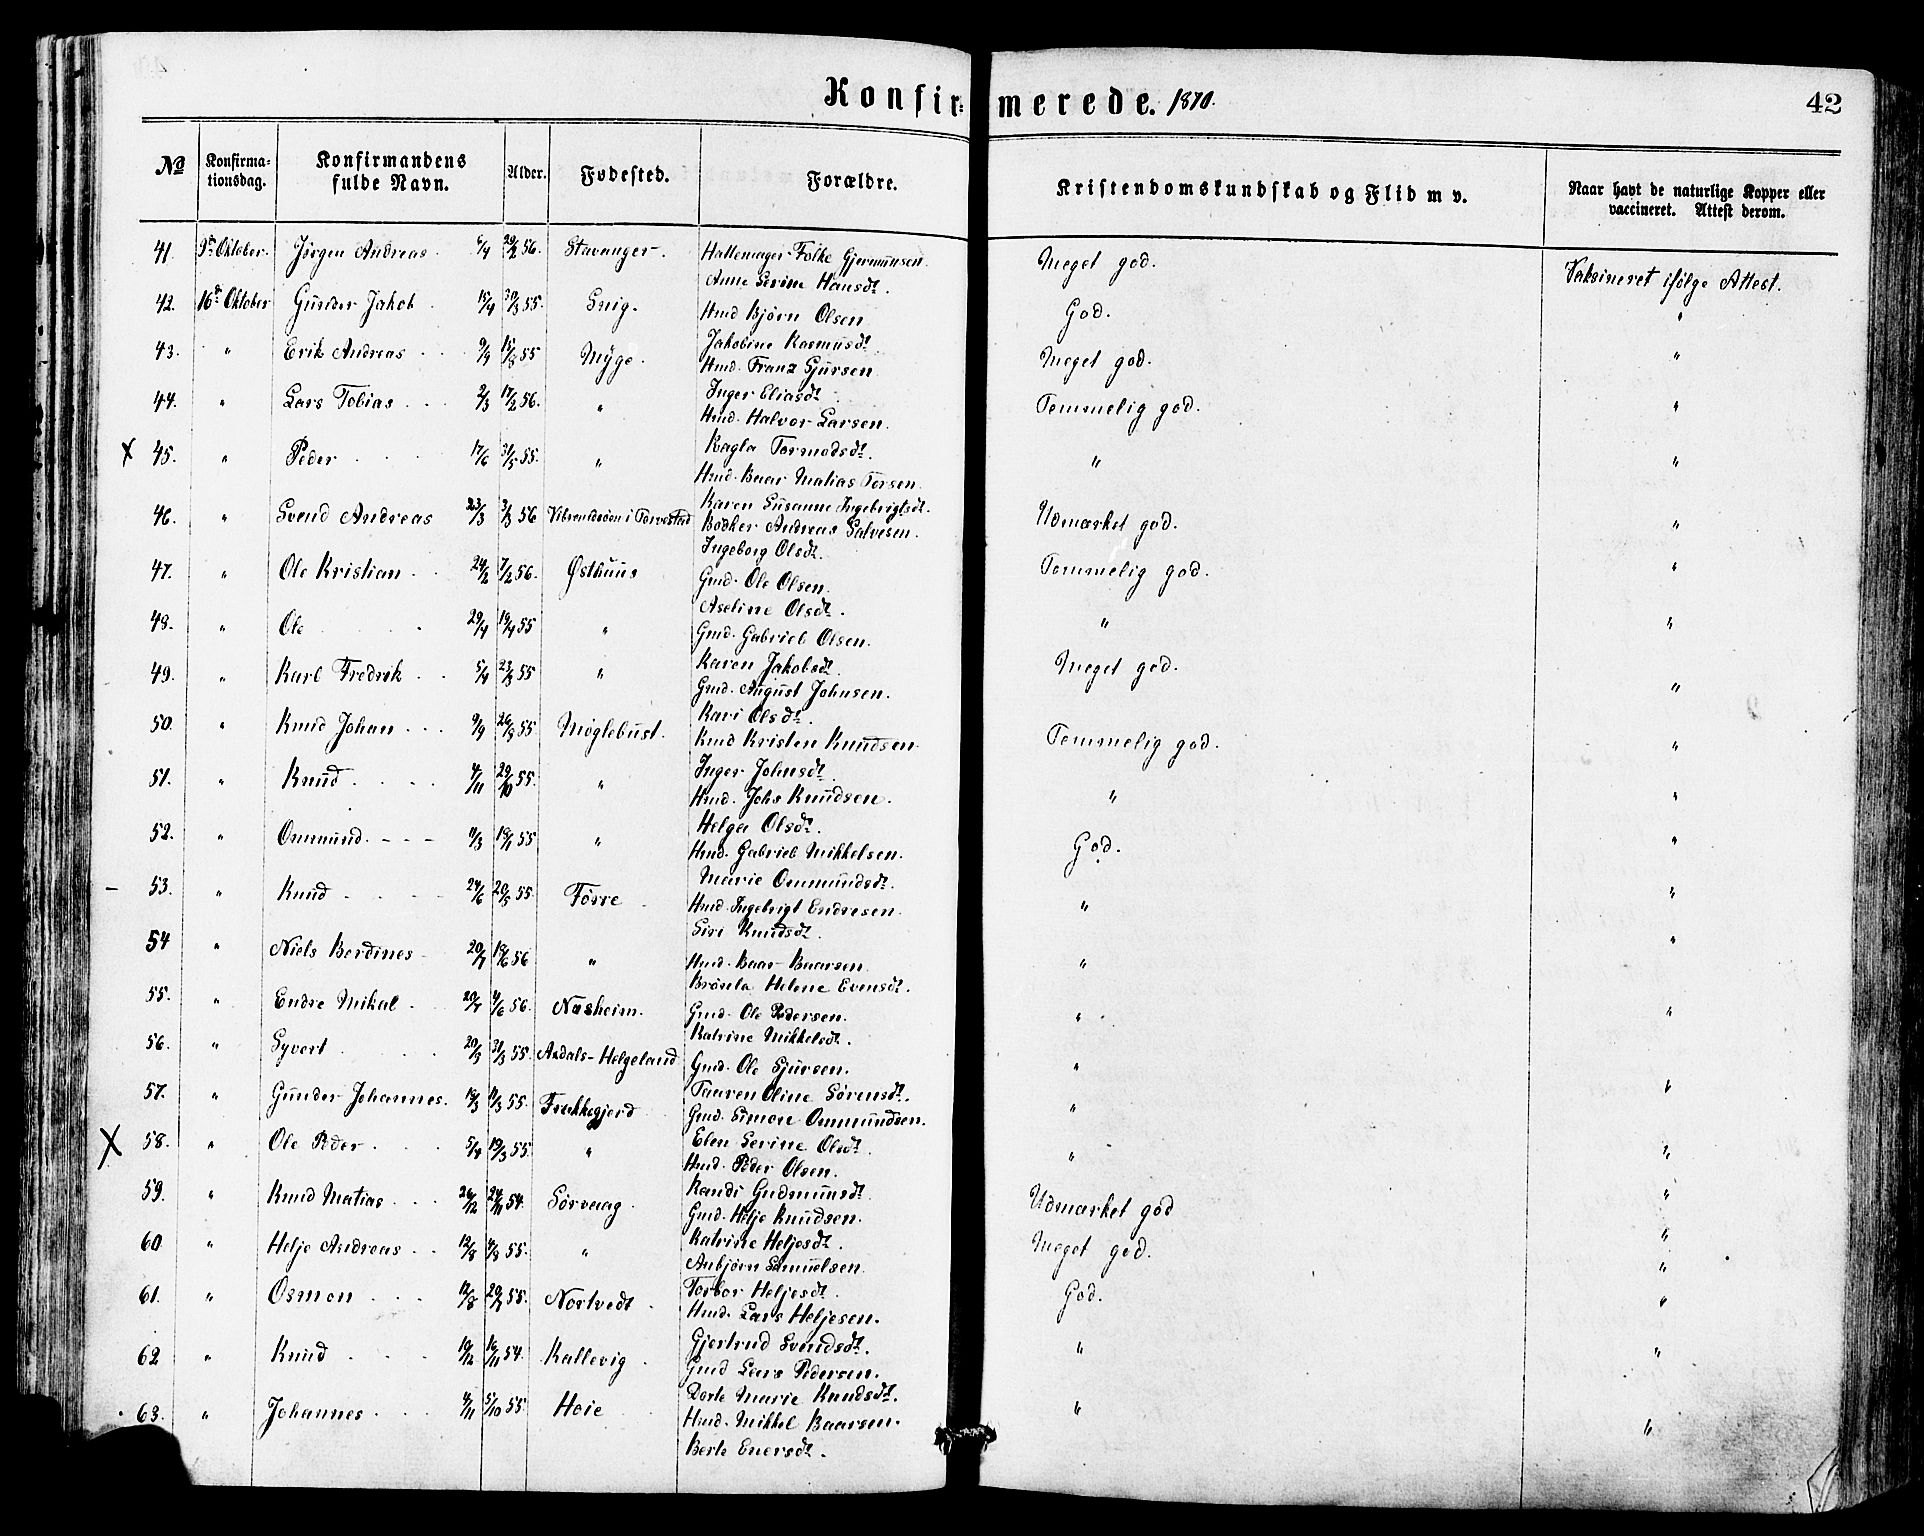 Konfirmerede. 1870.
42
No
Konfirmationsdag.
Konfirmandens fulde Navn.
Alder.
Fødested.
Forældre.
Kristendomskundskab og Flid m v.
Naar havt de naturlige Kopper eller vaccineret. Attest derom.
41. 9de Oktober. Jørgen Andreas 56. Stavanger. Hattemager Folke Gjermunsen. Meget god. Vaksineret ifølge Attest.
Anne Serine Hansdt.
42. 16de Oktober Gunder Jakob 15/4 30/3 55. Snig. Hmd Bjørn Olsen God. "
Jakobine Rasmusdt.
43. " Erik Andreas 55 Myge. Hmd. Franz Sjursen Meget god. "
Inger Eliasdt.
44. " Lars Tobias 2/3 17/2 56. " Hmd. Halvor Larsen. Temmelig god. "
Ragla Tormodsdt.
X 45. " Peder 17/6 31/5 55. " Hmd. Baar Matias Torsen " "
Karen Susanne Ingebrigtsdt.
46. " Svend Andreas 23/3 3/3 56 i Torvestad Bødker Andreas Salvesen. Udmærket god. "
Ingeborg Olsdt.
47. " Ole Kristian 24/2 7/2 56. Østhuus Gmd. Ole Olsen. Temmelig god. "
Aseline Olsdt.
48. " Ole 29/4 19/4 55 " Gmd. Gabriel Olsen. " "
Karen Jakobsdt.
49. " Karl Fredrik 5/4 23/3 55 " Gmd. August Johnsen. Meget god. "
Kari Olsdt.
50. " Knud Johan 9/9 26/8 55 Møglebust. Kmd Kristen Knudsen Temmelig god. "
Inger Johnsdt.
51. " Knud 4/11 29/10 55. " Hmd. Johs Knudsen. " "
Helga Olsdt.
52. " Ommund 11/3 55 " Hmd. Gabriel Mikkelsen. God. "
Marie Ommundsdt.
53. " Knud 24/6 20/5 55. Førre Hmd. Ingebrigt Endresen. " "
Siri Knudsdt.
54 " Niels Berdines 56 " Hmd. Baar Baarsen " "
Helene Evensdt.
55. " Endre Mikal 56. Næsheim. Gmd. Ole Pedersen. " "
Katrine Mikkelsdt.
56. " Syvert 20/5 31/3 55. Aadals-Helgeland Gmd. Ole Sjursen. "
Oline Sørensdt.
57. " Gunder Johannes. 55. Frakkagjerd Gmd. Simon Ommundsen. " "
Elen Serine Olsdt.
X 58. " Ole Peder 5/4 19/3 55. " Hmd. Peder Olsen. " "
Randi Gudmunsdt.
59. " Knud Matias 26/12 24/11 54. Sørvaag. Gmd. Helje Knudsen. Udmærket god "
Katrine Heljesdt.
60 " Helje Andreas 12/8 4/8 55. " Anbjørn Samuelsen. Meget god. "
Torbor Heljesdt. "
61. " Osmon 12/8 29/7 55. Nortvedt Hmd. Lars Heljesen. God. "
Gjertrud Svendsdt.
62 " Knud 19/12 16/11 54. Kallevig Gmd Lars Pedersen. " "
Dorte Marie Knudsdt.
63. " Johannes 4/11 5/10 55. Høie Hmd. Mikkel Baarsen. " "
Berte Enersdt.